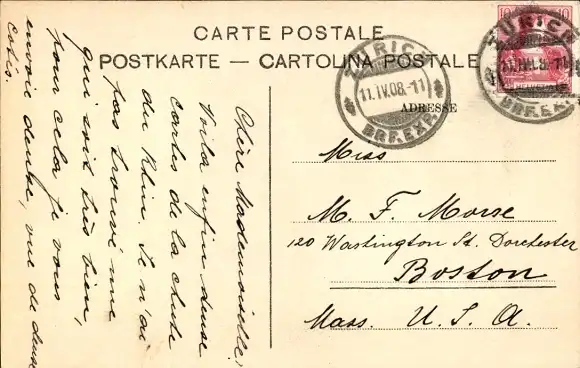 CARTE POSTALE
POSTKARTE — CARTOLINA POSTALE
10
ZÜRICH
11.IV.08.-11
BRF.EXP.
ZÜRICH
11.IV.08.-11
BRF.EXP.
ADRESSE
Miss
M. F. Morse
120 Washington St. Dorchester
Boston
Mass. U. S. A.
Chère Mademoiselle!
Voilà enfin deux
cartes de la chute
du Rhin. Je n'ai
pas trouvé une
qui soit très bien,
pour cela je vous
envoie deuxe, vue de deux
cotés.